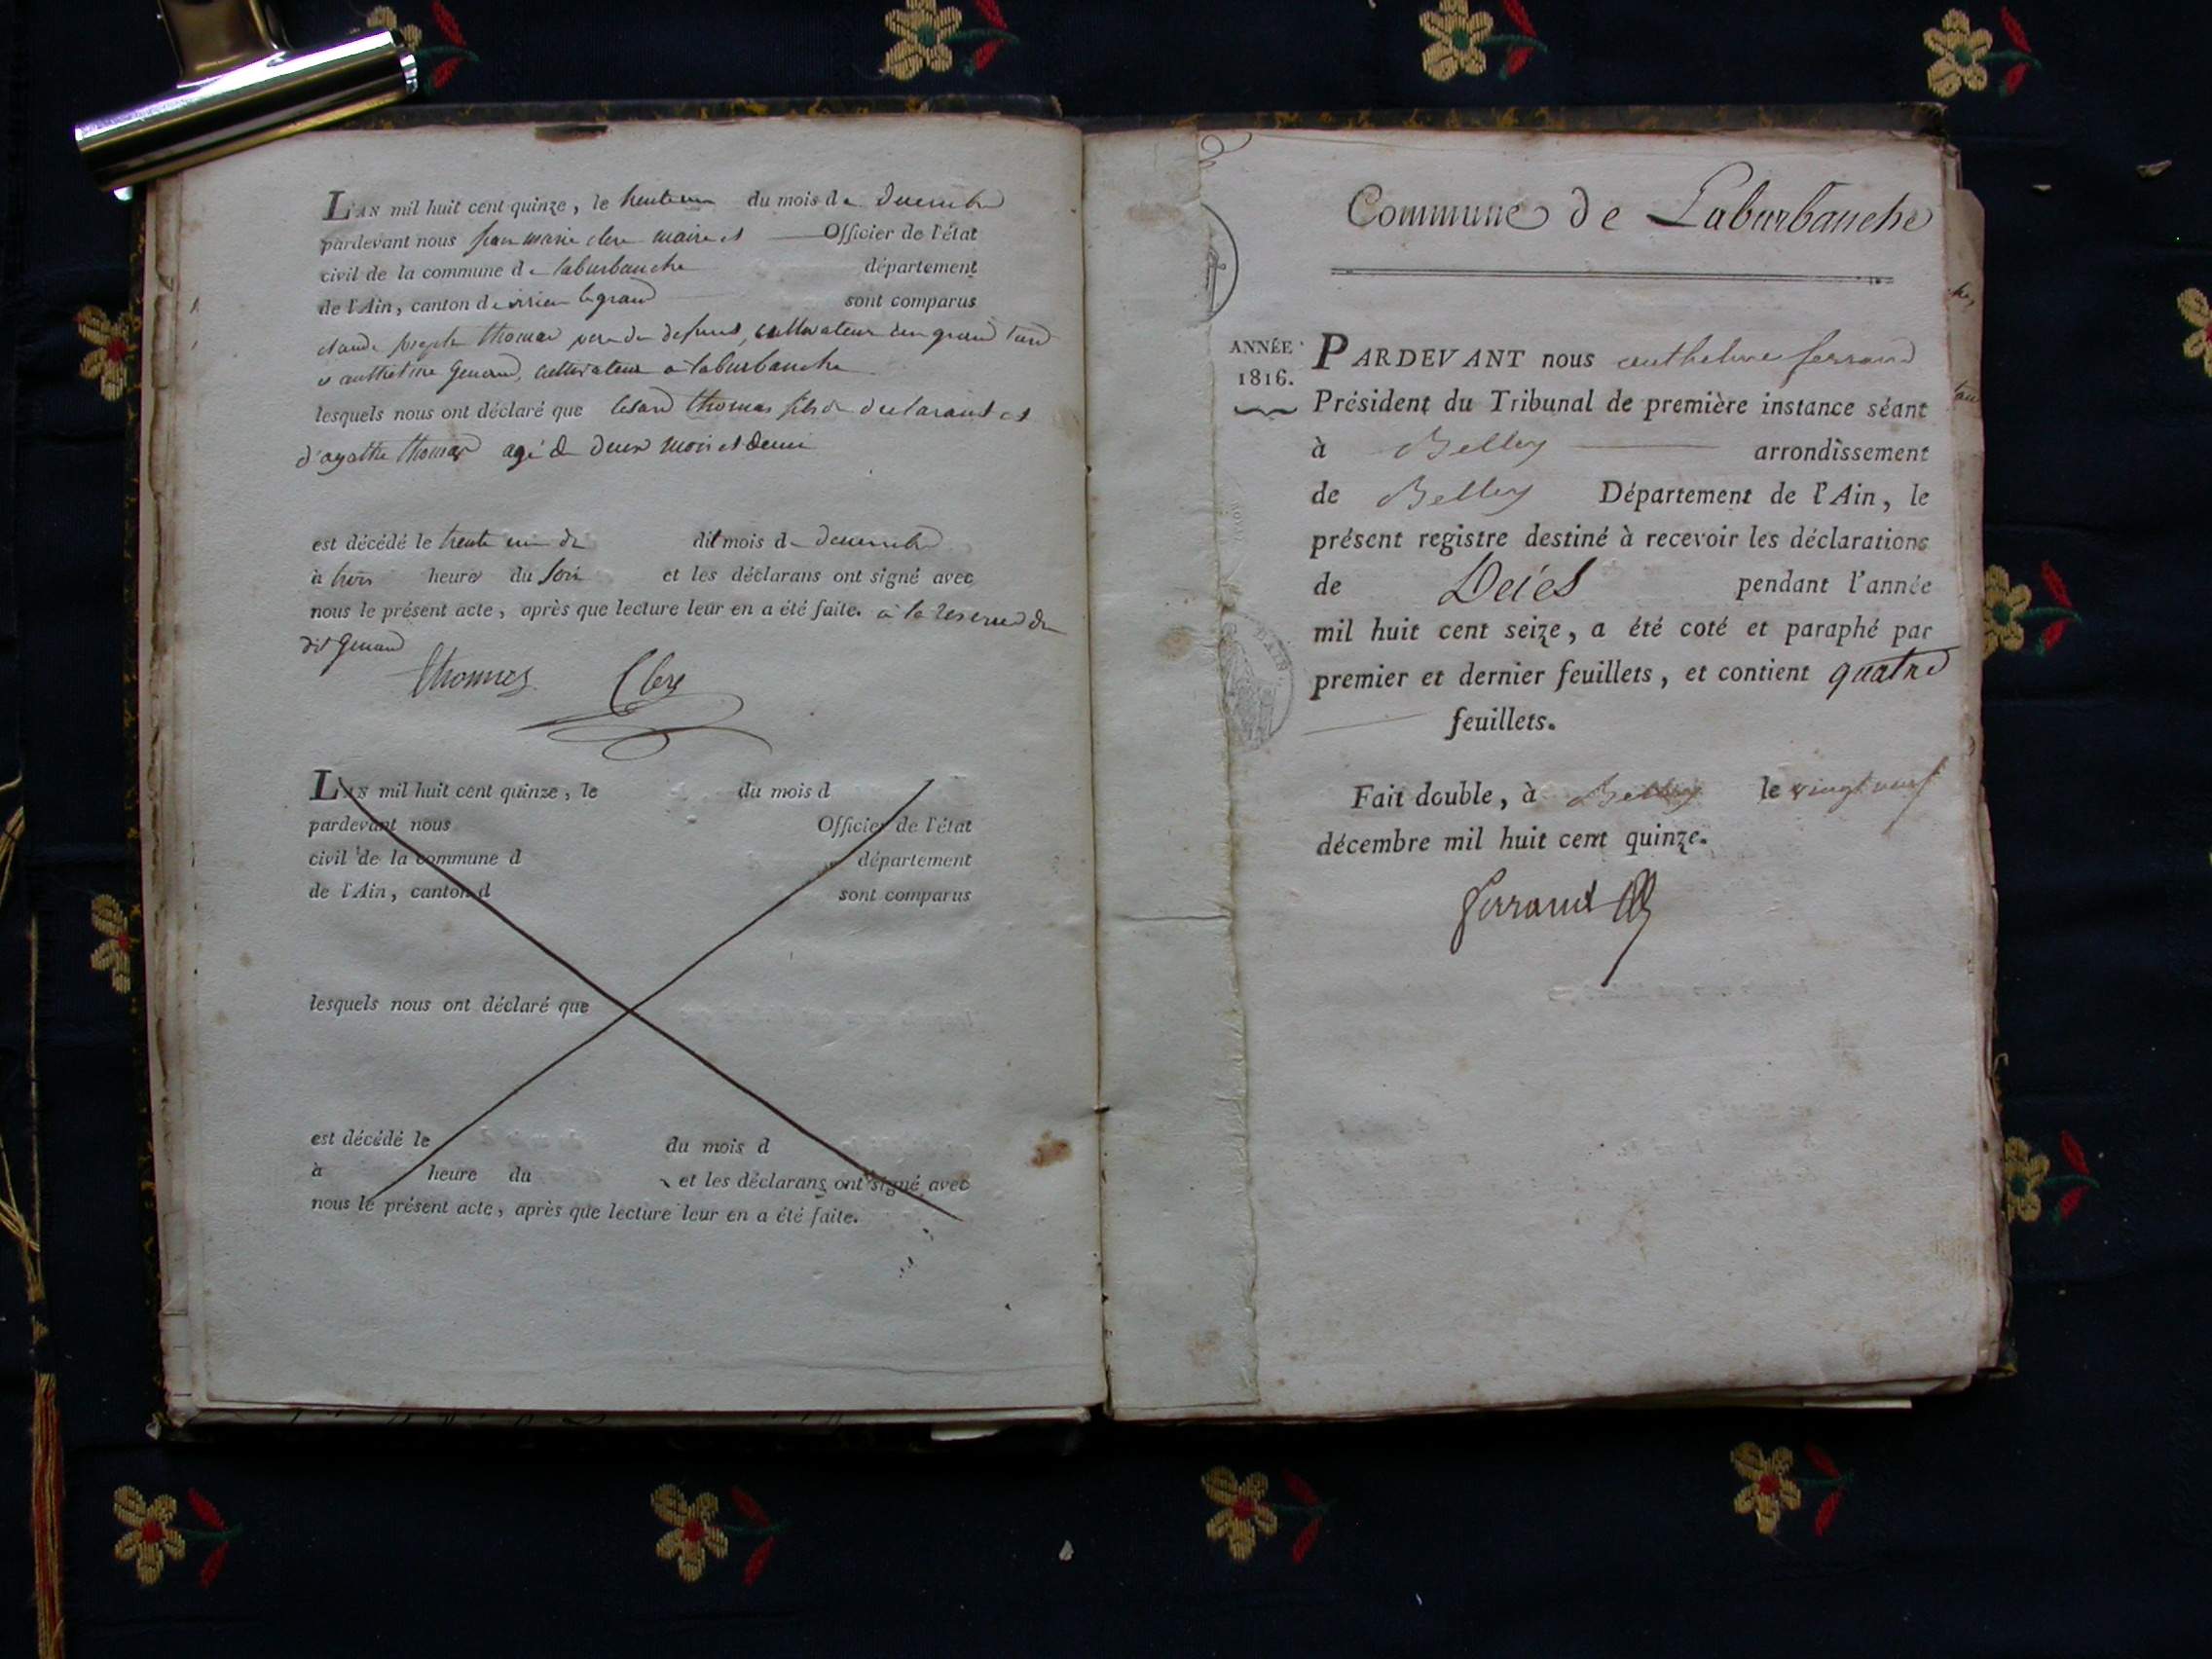 L'AN mil huit cent quinze, le trente un du mois de decembre
pardevant nous jean marie clerc maire et Officier de l'état
civil de la commune de laburbanche département
de l'Ain, canton de virieu le grand sont comparus
claude joseph thomas pere du defunt, cultivateur
et anthelme Genand, cultivateur a laburbanche
lesquels nous ont déclaré que thomas fils du declarant et
d'agathe thomas agé de deux mois et demi
est décédé le trente un du dit mois de decembre
à trois heure du soir et les déclarans ont signé avec
nous le présent acte, après que lecture leur en a été faite. a la reserve du
dit Genand
thomas Clerc
L'AN mil huit cent quinze, le du mois d
pardevant nous Officier de l'état
civil de la commune d département
de l'Ain, canton d sont comparus
lesquels nous ont déclaré que
est décédé le du mois d
à heure du et les déclarans ont signé avec
nous le présent acte, après que lecture leur en a été faite.
Commune de Laburbanche
ANNÉE
1816.
PARDEVANT nous anthelme ferrand
Président du Tribunal de première instance séant
à Belley arrondissement
de Belley Département de l'Ain, le
présent registre destiné à recevoir les déclarations
de Décès pendant l'année
mil huit cent seize, a été coté et paraphé par
premier et dernier feuillets, et contient quatre
feuillets.
Fait double, à Belley le vingt neuf
décembre mil huit cent quinze.
ferrand